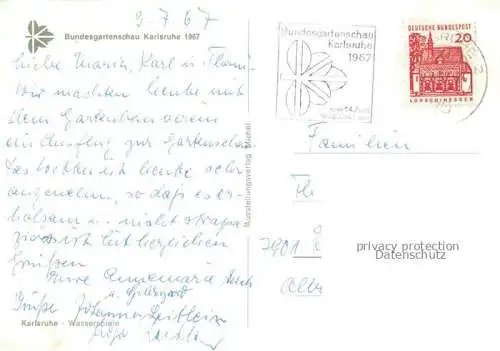 9.7.67
Bundesgartenschau Karlsruhe 1967
Liebe Maria, Karl u.
wir machten heute mit
dem Gartenbauverein
ein Ausflug zur Gartenschau.
Das Wetter ist heute sehr
angenehm, so daß es er-
holsam u. nicht strapa-
ziös ist. Mit herzlichen
Grüßen
Eure Annemarie
u. Hildegard
Grüße Johanna
Karlsruhe - Wasserspiele
Ausstellungsverlag Michel
Bundesgartenschau
Karlsruhe
1967
DEUTSCHE BUNDESPOST
20
LORSCH/HESSEN
Familien
7901
privacy protection
Datenschutz